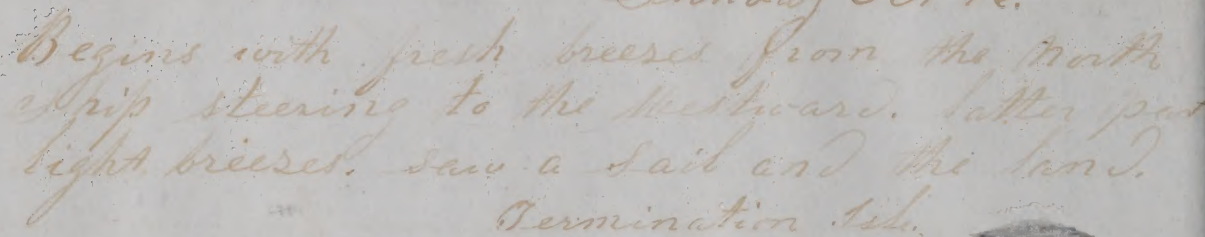 Begins with fresh breezes from the North
Ship steering to the Westward. latter part
light breezes. saw a sail and the land.
Termination Isl.